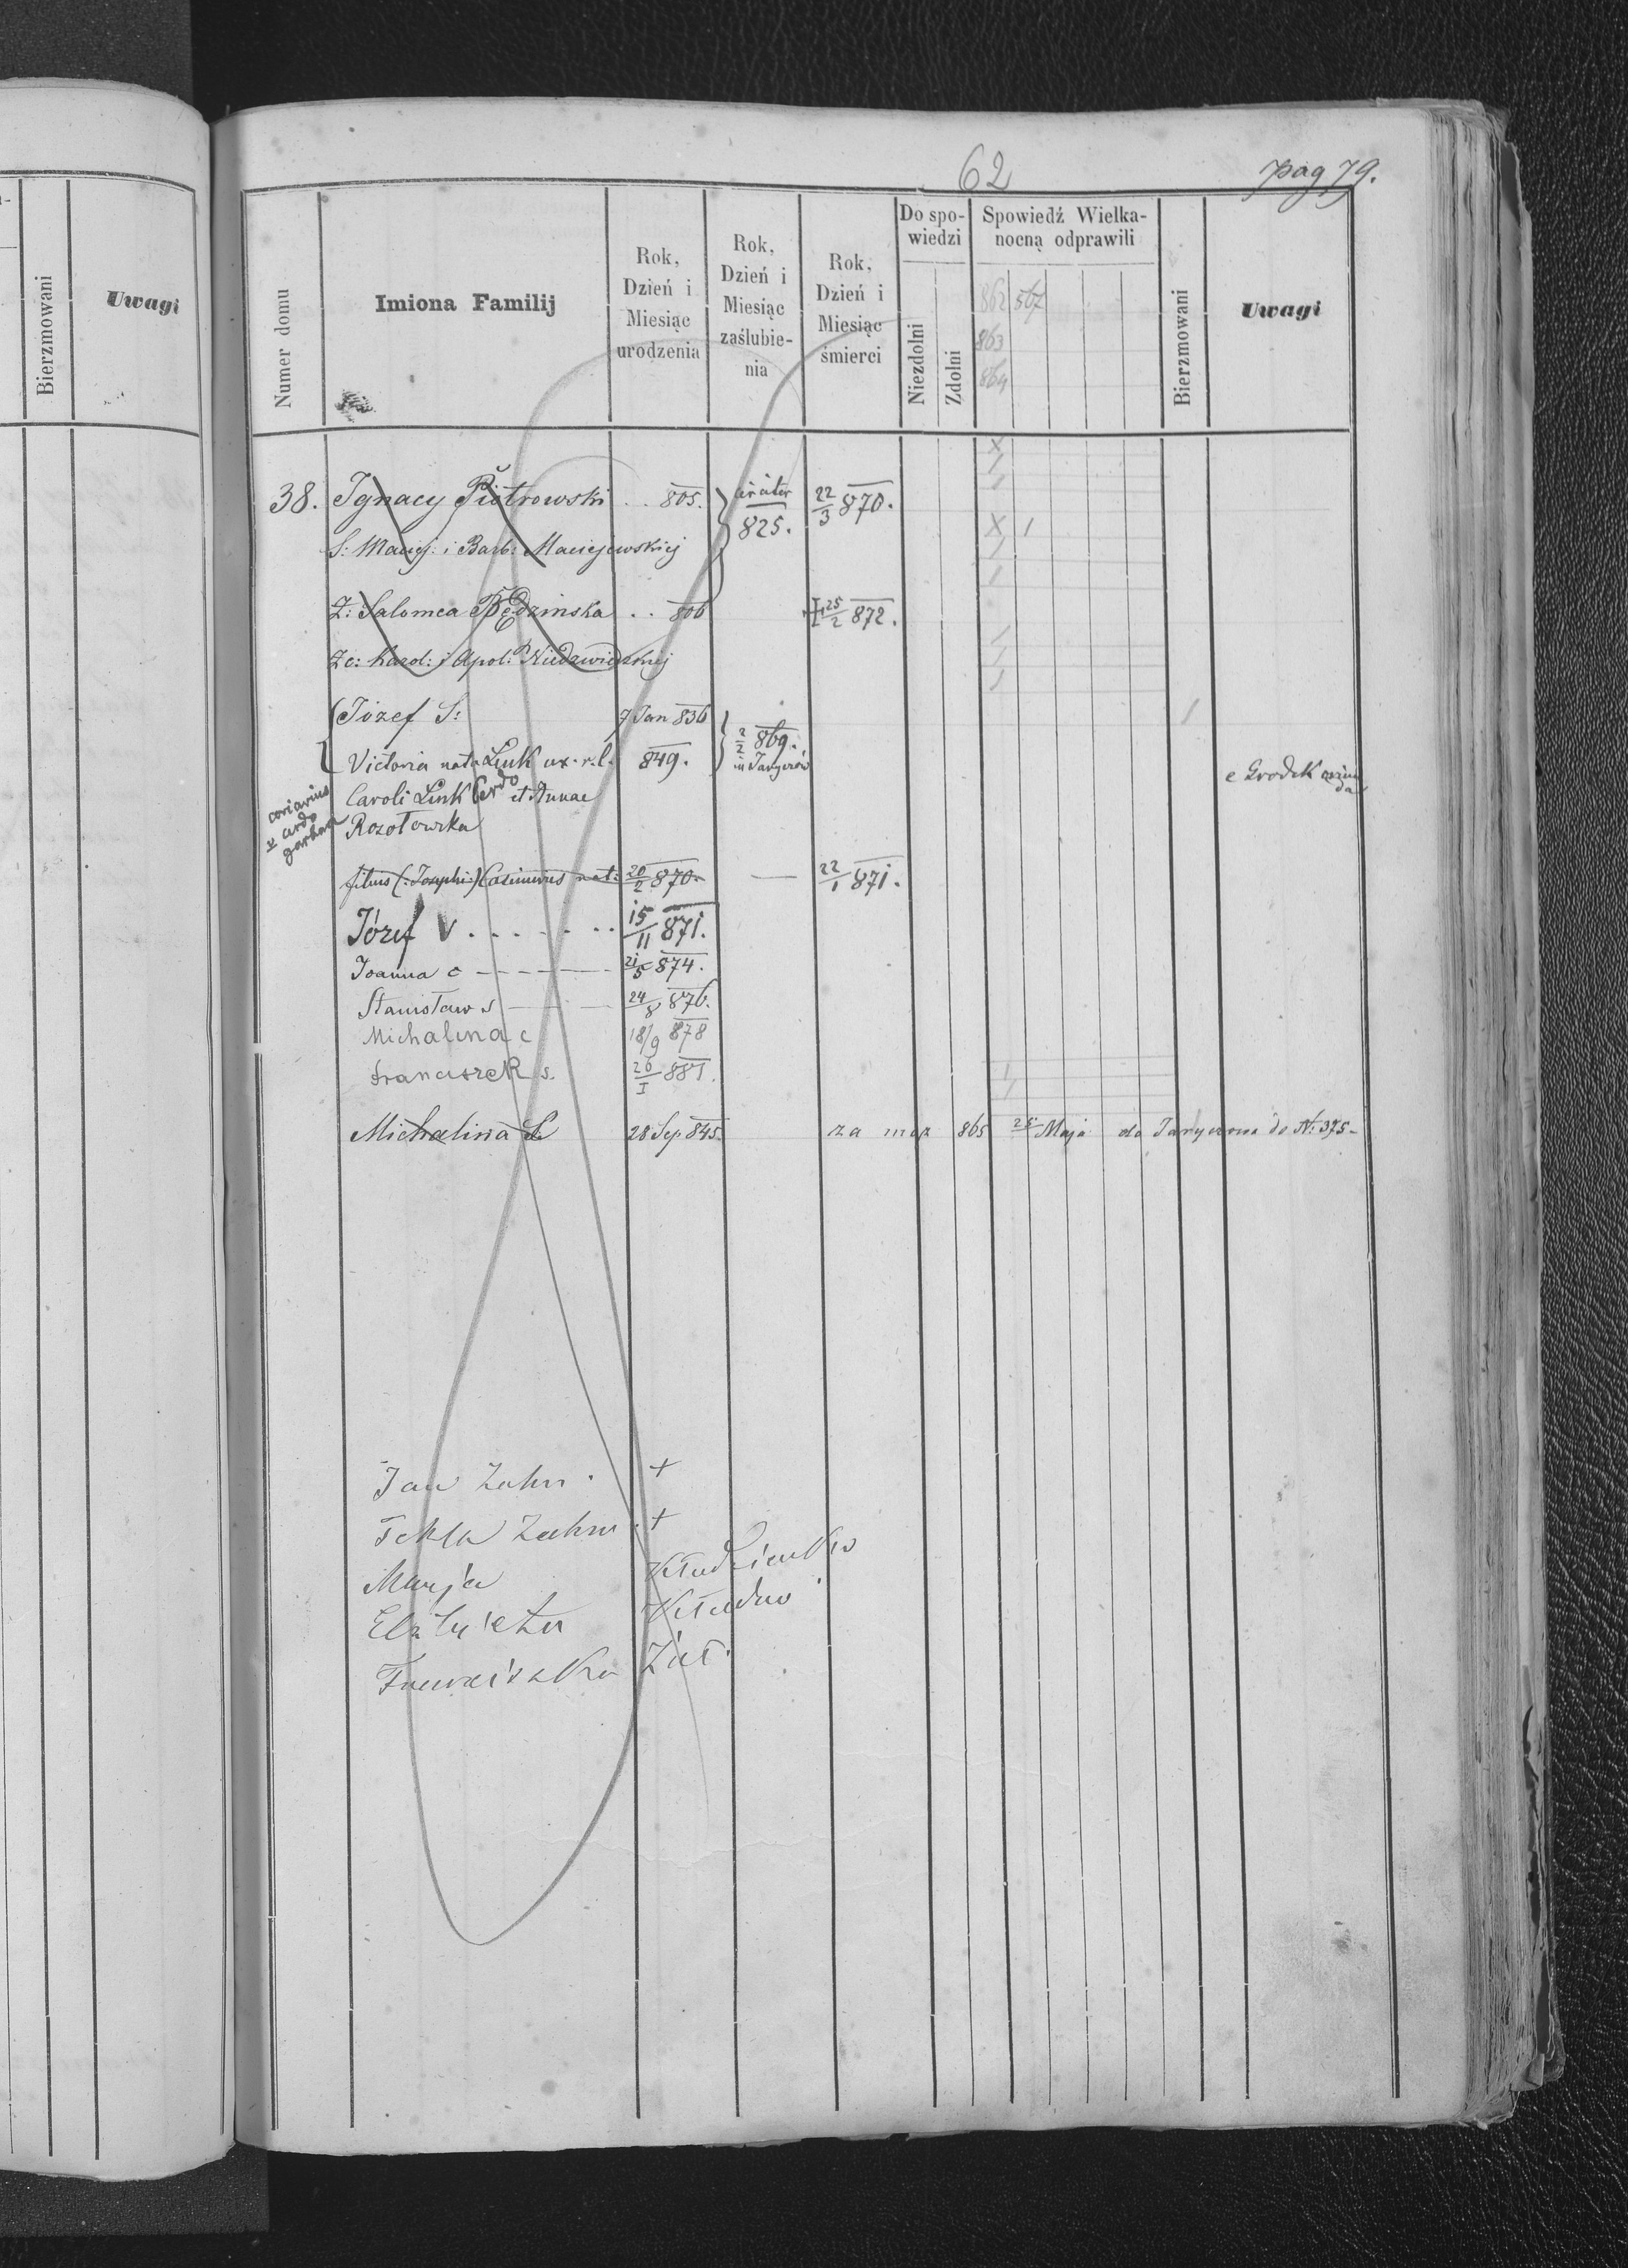 Bierzmowani
Uwagi
62
pag 79.
Numer domu
Imiona Familij
Rok, Dzień i Miesiąc urodzenia
Rok, Dzień i Miesiąc zaślubienia
Rok, Dzień i Miesiąc śmierci
Do spowiedzi
Niezdolni
Zdolni
Spowiedź Wielkanocną odprawili
862 567
863
864
Bierzmowani
Uwagi
38. Ignacy Piotrowski . . 805. circiter 825. 22/3 870.
S: Maciej: i Barb: Maciejewskiej
Ż: Salomea Będzinska . . 806 25/2 872.
Zc: Karol: i Apol: Niedzwiedzkiej
Józef S: 7 Jan 836 2/2 869.
Victoria nata Link ux. r. l. 849. in Tarycrów
e Grodek
Caroli Link Cerdo et Annae
coriarius v cerdo garbarz
Rozołowska
filius (: Josephi:) Casimirus nat: 20/2 870. — 22/1 871.
Józef V . . . . . . . 15/11 871.
Joanna c - - - - - - 21/5 874.
Stanisław s - - - 24/8 876.
Michalina c 18/9 878
Franciszek s. 26/I 881.
Michalina C: 28 Sep. 845. za mąz 865 25 Maja do N: 375-
Jan Zahn . +
Tekla Zahn . +
Marja Kłudzienko
Elżbieta Kłudno
Franciszka Żuł.